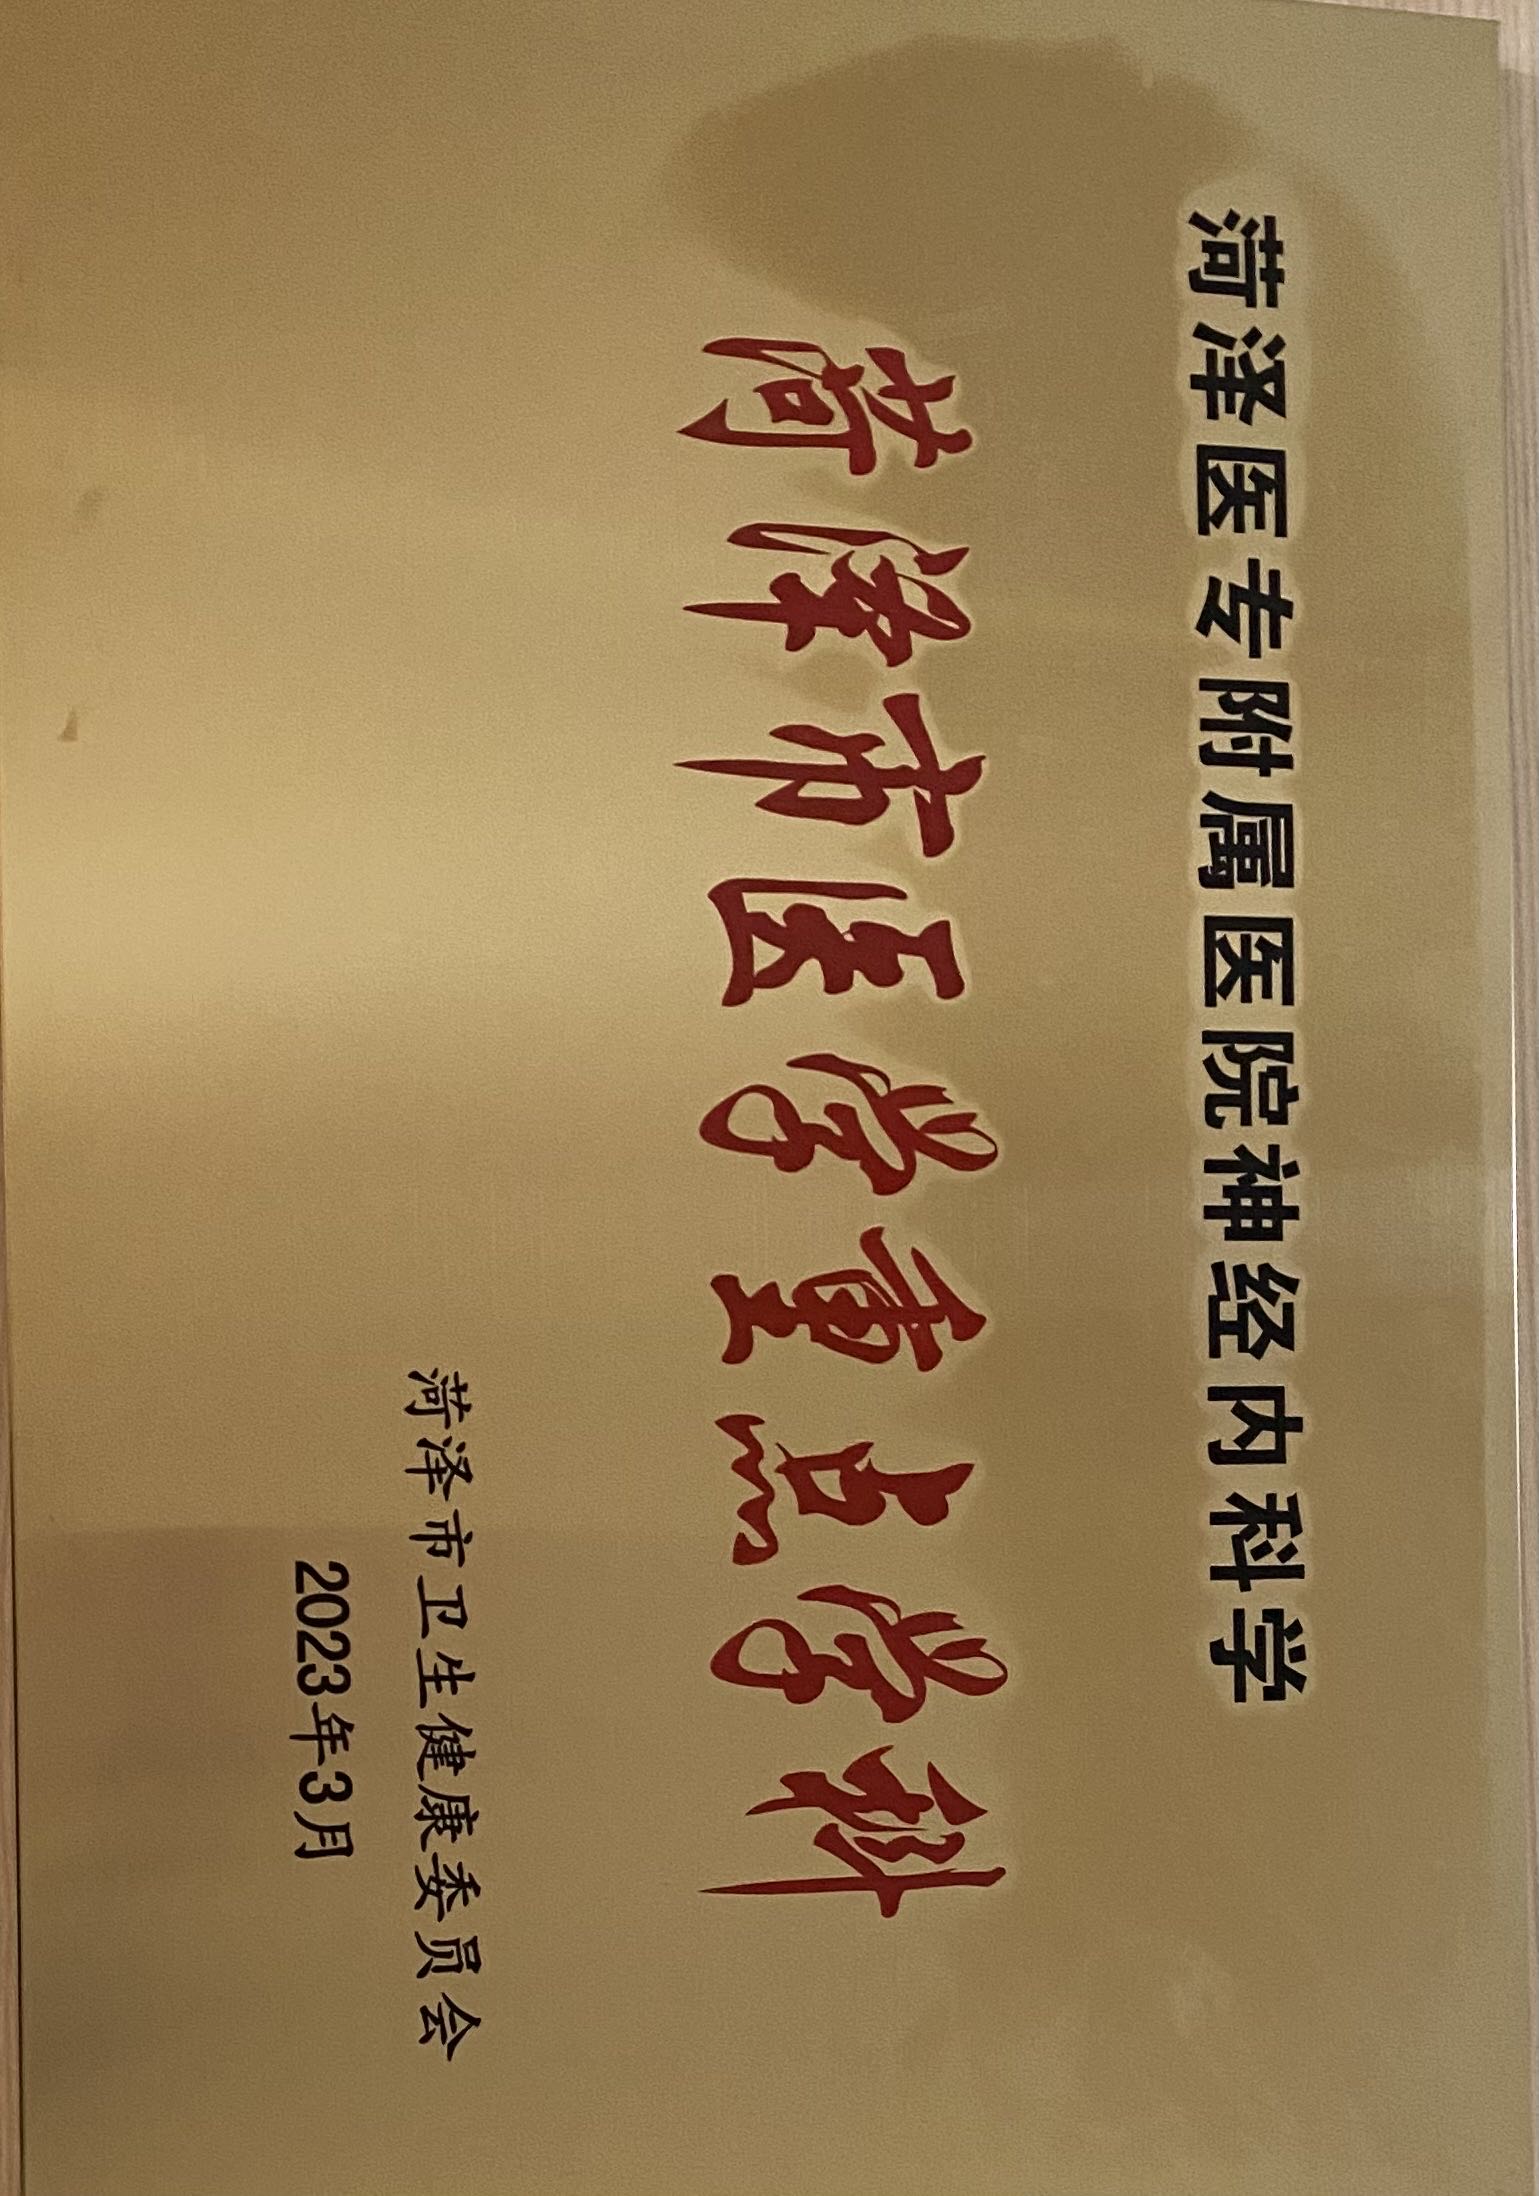 菏泽医专附属医院神经内科学
菏泽市医学重点学科
菏泽市卫生健康委员会
2023年3月